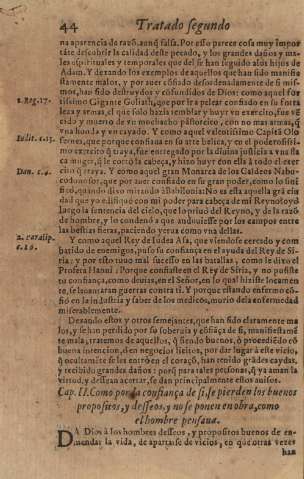 44 Tratado segundo
na aparencia de razõ, aunq̃ falsa. Por esto parece cosa muy impor
tãte descubrir la calidad deste pecado, y los grandes daños y ma-
les espirituales y temporales que del se han seguido a los hijos de
Adam. Y dexando los exemplos de aquellos que han sido manifie
stamente malos, y por auer cõfiado desordenadamente de si mis-
mos, han sido destruydos y cõfundidos de Dios: como aquel for
1. Reg. 17.
tissimo Gigante Goliath, que por ir a pelear confiado en su forta
leza y armas, el que solo hazia temblar y huyr vn exercito, fue vẽ
cido y muerto de vn muchacho pastorcico, con no mas armas, q̃
vna honda y vn cayado. Y como aquel valentissimo Capitã Olo
fernes, que porque confiaua en su arte belica, y en el poderosissi-
mo exercito q̃ traya, fue entregado por la diuina justicia a vna fla
ca muger, q̃ le cortò la cabeça, y hizo huyr con ella à todo el exer
cito q̃ traya. Y como aquel gran Monarca de los Caldeos Nabu-
Dan. c.4.
codonosor, que por auer confiado en su gran poder, como lo sini
ficò, quando dixo mirando a Babilonia: No es esta aquella grã ciu
dad que yo edifiquè con mi poder para cabeça de mi Reyno? oyò
luego la sentencia del cielo, que lo priuò del Reyno, y de la razõ
de hombre, y lo condenò a que anduuiesse por los campos entre
las bestias fieras, paciendo yerua como vna dellas.
Y como aquel Rey de Iudea Asa, que viendose cercado y com
batido de enemigos, puso su confiança en el ayuda del Rey de Si-
ria: y por esto tuuo mal sucesso en las batallas, como le dixo el
Profeta Hanui: Porque confiaste en el Rey de Siria, y no posiste
tu confiança, como deuias, en el Señor, en lo qual hiziste locamen
te, se leuantaran guerras contra ti. Y porque estando enfermo cõ-
fiò en la industria y saber de los medicos, murio de la enfermedad
miserablemente.
Dexando estos y otros semejantes, que han sido claramente ma
los, y se han perdido por su soberuia y cõfiãça de si, manifiestamẽ
te mala, tratemos de aquellos, q̃ siendo buenos, ò procediẽdo cõ
buena intencion, en negocios licitos, por dar lugar à este vicio,
q̃ ocultamẽte se les entrò en el coraçõ, han tenido grãdes caydas,
y recibido grandes daños: porq̃ para tales personas, q̃ ya aman la
virtud, y dessean acertar, se dan principalmente estos auisos.
Cap. II. Como por la confiança de si, se pierden los buenos
propositos, y desseos, y no se ponen en obra, como
el hombre pensaua.
DA Dios à los hombres desseos, y propositos buenos de en-
mendar la vida, de apartarse de vicios, en que otras vezes
han